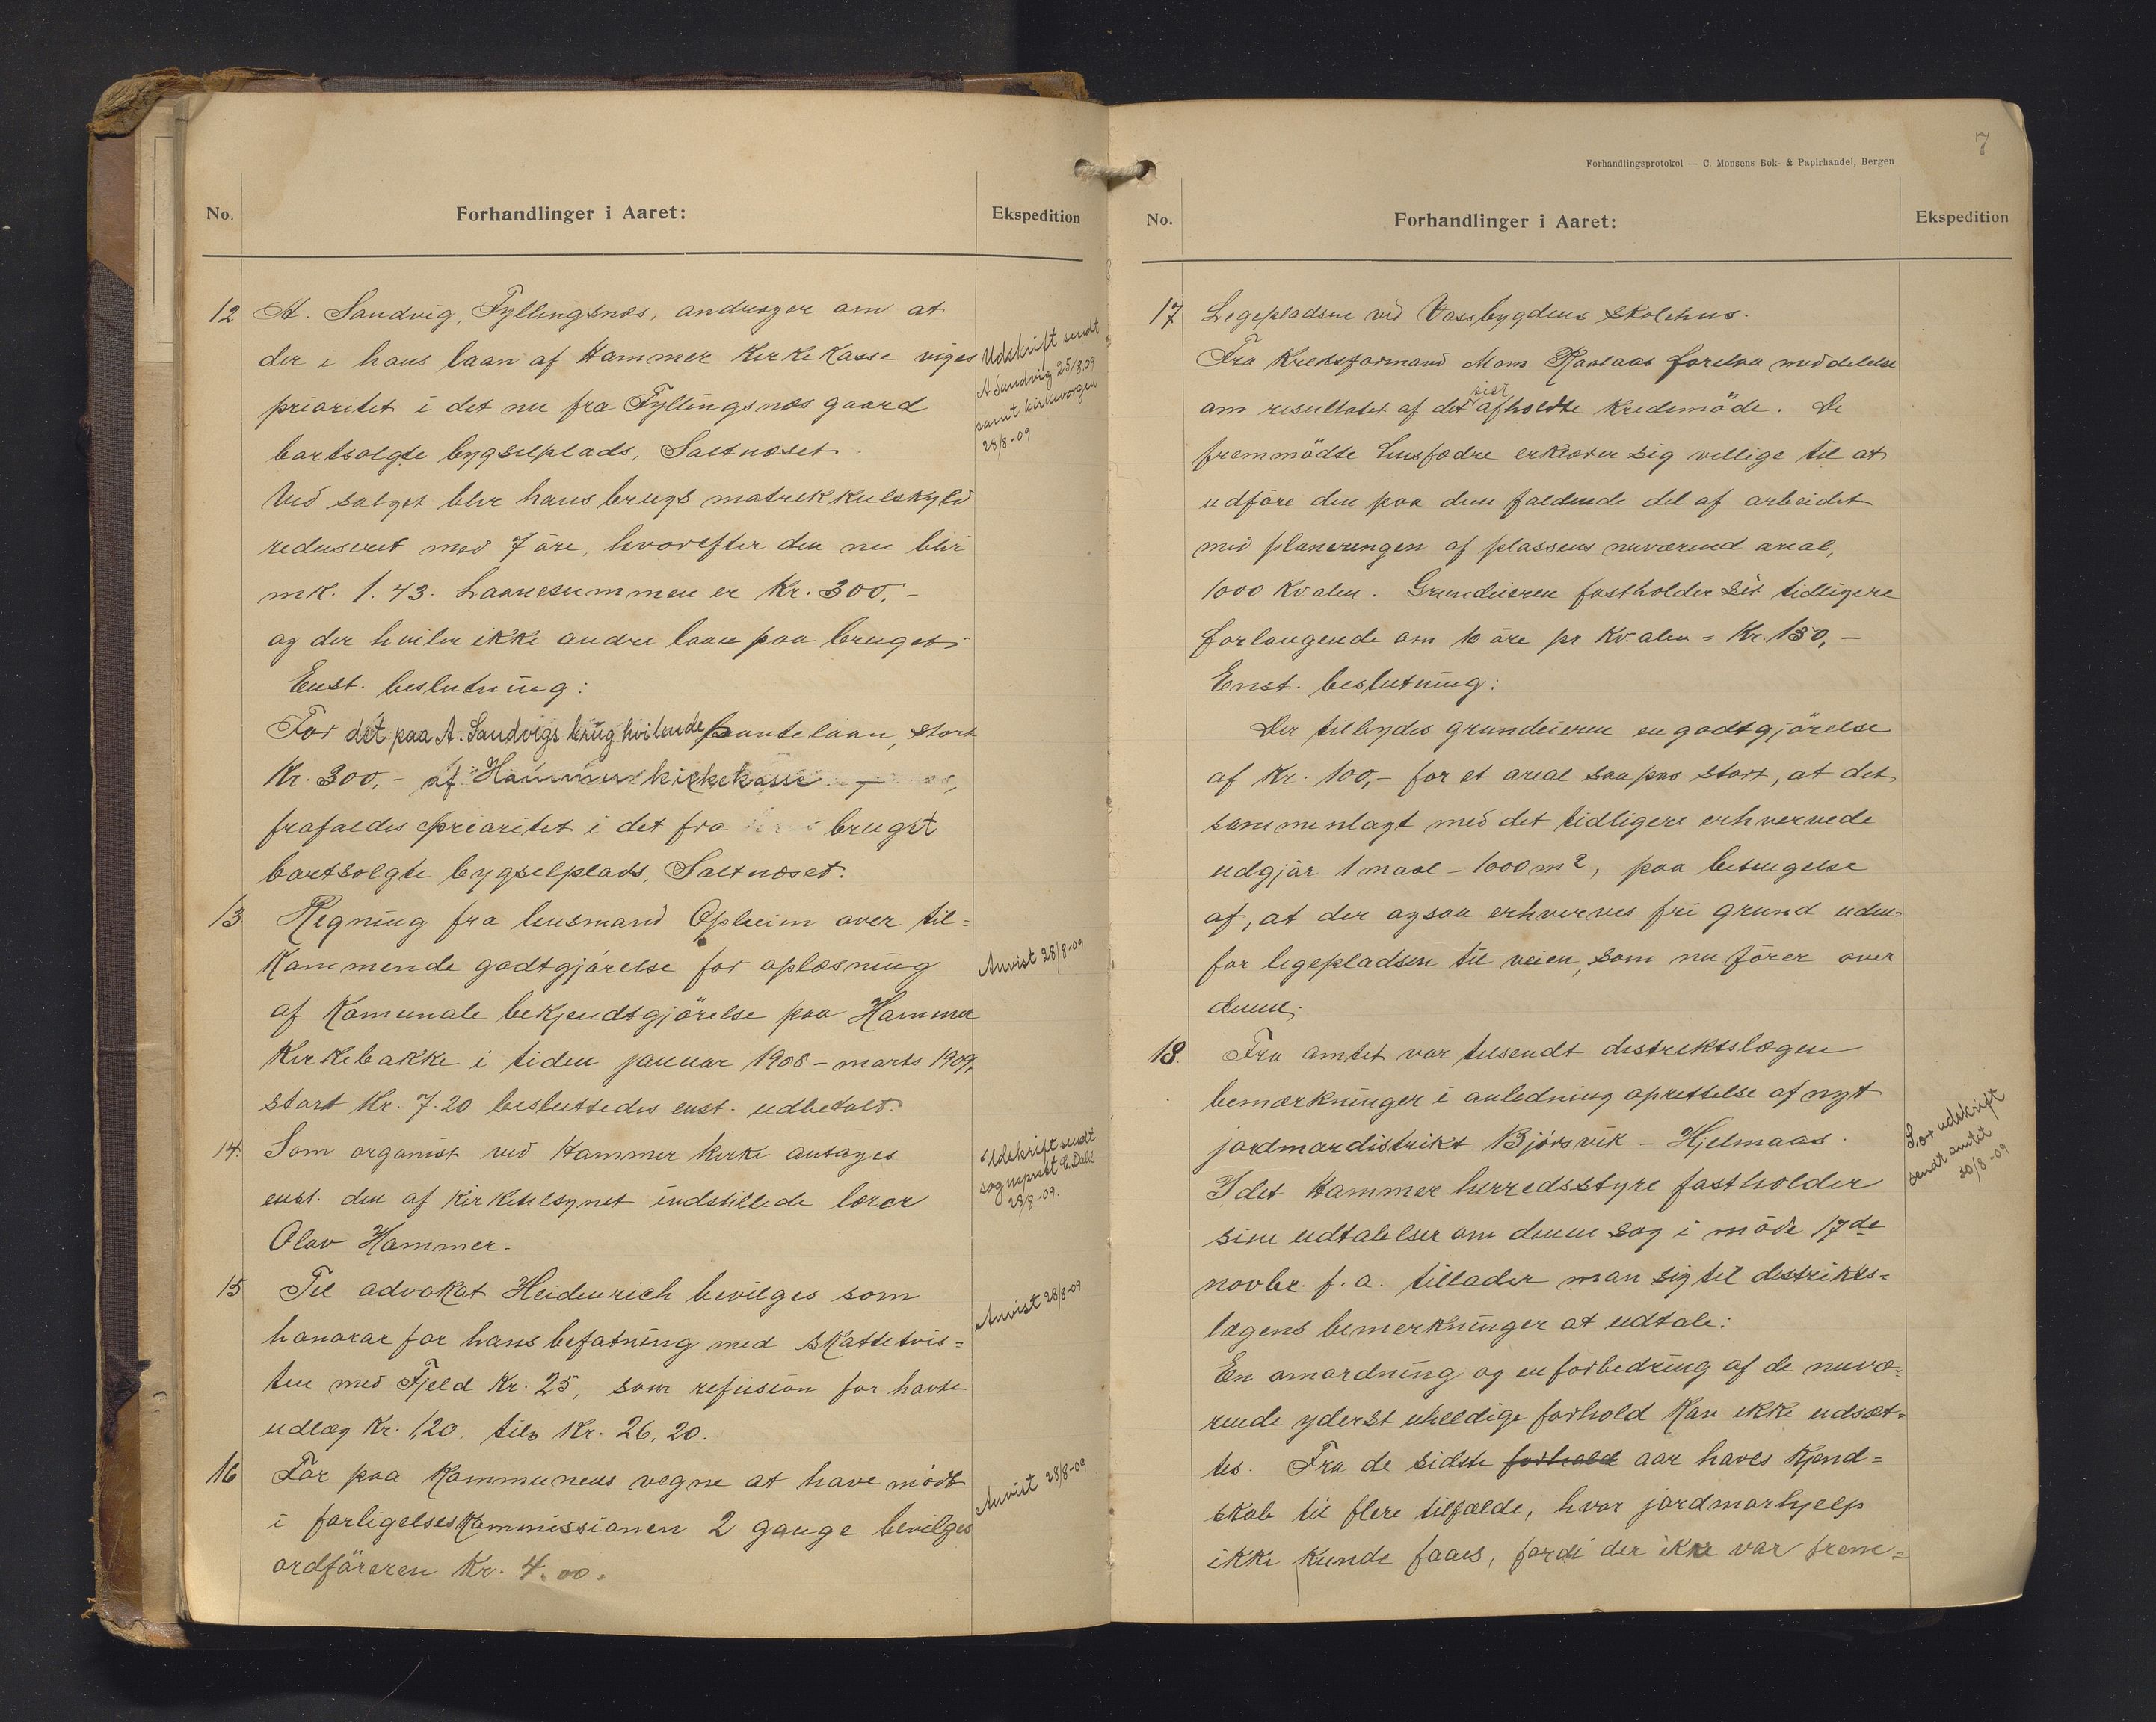 No.
Forhandlinger i Aaret:
Ekspedition
12 A. Sandvig, Fyllingsnæs, andrager om at
der i hans laan af Hammer Kirkekasse viges
prioritet i det nu fra Fyllingsnæs gaard
bortsolgte bygselplads, Saltnæset.
Ved salget blir hans brugs matrikkulskyld
reduseret med 7 öre, hvorefter den nu blir
mk. 1.43. Laanesummen er Kr. 300,-
og der hviler ikke andre laan paa bruget.
Enst. beslutning:
For det paa A. Sandvigs brug hvilende pantelaan, stort
Kr. 300,- af Hammer kirkekasse
frafaldes prioritet i det fra bruget
bortsolgte bygselplads, Saltnæset.
Udskrift sendt
A Sandvig 25/8.09
samt kirkevergen
28/8-09
13. Regning fra lensmand Opheim over til=
kommende godtgjörelse for oplæsning
af Komunale bekjendtgjörelse paa Hammer
Kirkebakke i tiden januar 1908 - marts 1909,
stort Kr. 7.20 besluttedes enst. udbetalt.
Anvist 28/8-09
14. Som organist ved Hammer Kirke antages
enst. den af Kirketilsynet indstillede lærer
Olav Hammer.
Udskrift sendt
sogneprest E. Dahl
28/8-09.
15 Til advokat Heidenreich bevilges som
honorar for hans befatning med skattetvis=
ten med Fjeld Kr. 25, som refusion for havte
udlæg Kr. 1,20, tils Kr. 26,20.
Anvist 28/8-09
16 For paa Kommunens vegne at have mödt
i forligelseskommissionen 2 gange bevilges
ordföreren Kr. 4.00.
Anvist 28/8-09
7
Forhandlingsprotokol — C. Monsens Bok- & Papirhandel, Bergen
No.
Forhandlinger i Aaret:
Ekspedition
17 Legepladsen ved Vassbygdens skolehus.
Fra Kredsformand Mons Raalaas forelaa meddelelse
om resultatet af det sist afholdte Kredsmöde. De
fremmödte husfædre erklærer sig villige til at
udföre den paa dem faldende del af arbeidet
med planeringen af plassens nuværend areal,
1000 Kv.alen. Grundeieren fastholder sit tidligere
forlangende om 10 öre pr Kv.alen = Kr. 130,-
Enst. beslutning:
Der tilbydes grundeieren en godtgjörelse
af Kr. 100,- for et areal saapas stort, at det
sammenlagt med det tidligere erhvervede
udgjör 1 maal - 1000 m2, paa betingelse
af, at der ogsaa erhverves fri grund uden=
for legepladsen til veien, som nu förer over
denne.
18. Fra amtet var tilsendt distriktslægens
bemærkninger i anledning oprettelse af nyt
jordmordistrikt Björsvik - Hjelmaas.
Idet Hammer herredsstyre fastholder
sine udtalelser om denne sag i möde 17de
novbr. f.a. tillader man sig til distrikts=
lægens bemerkninger at udtale:
En omordning og en forbedring af de nuvæ=
rende yderst uheldige forhold kan ikke udsæt=
tes. Fra de sidste forhold aar haves kjend=
skab til flere tilfælde, hvor jordmorhjelp
ikke kunde faaes, fordi der ikke var frem=
Særudskrift
sendt amtet
30/8-09